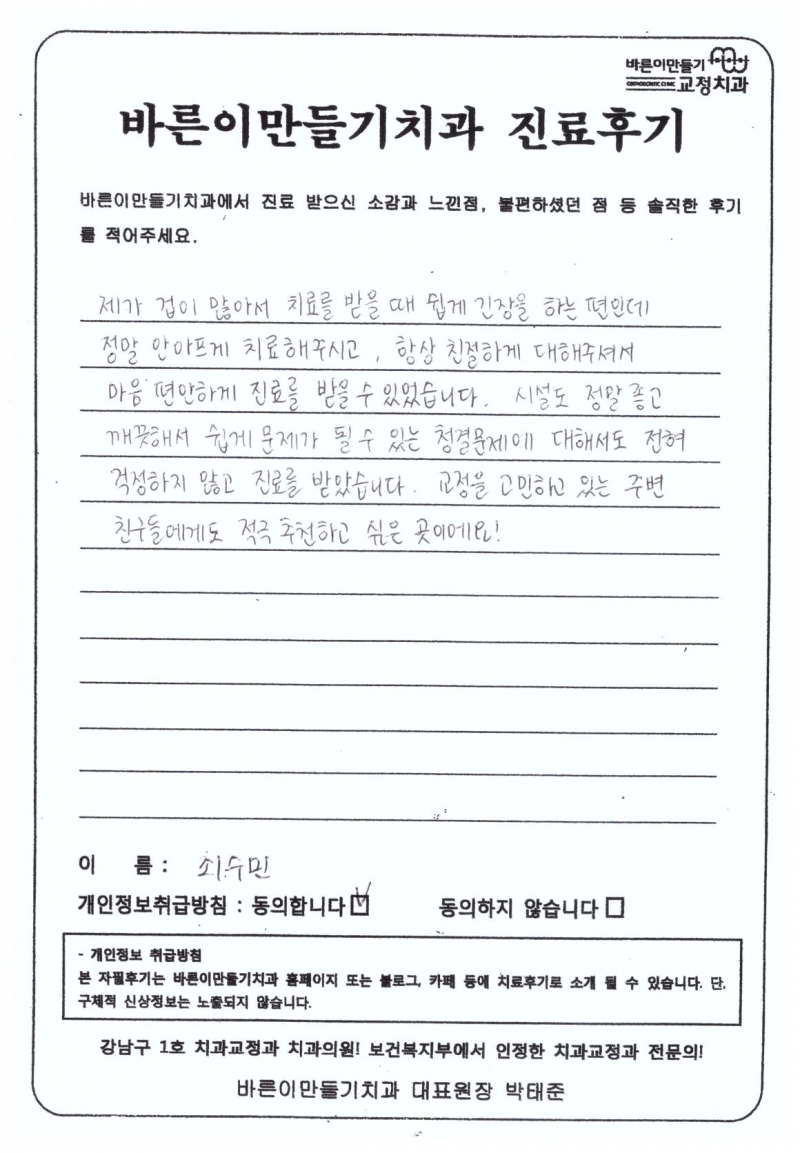 바른이만들기
ORTHODONTIC CLINIC 교정치과
바른이만들기치과 진료후기
바른이만들기치과에서 진료 받으신 소감과 느낀점, 불편하셨던 점 등 솔직한 후기
를 적어주세요.
제가 겁이 많아서 치료를 받을 때 쉽게 긴장을 하는 편인데
정말 안아프게 치료해주시고, 항상 친절하게 대해주셔서
마음 편안하게 진료를 받을 수 있었습니다. 시설도 정말 좋고
깨끗해서 쉽게 문제가 될 수 있는 청결문제에 대해서도 전혀
걱정하지 않고 진료를 받았습니다. 교정을 고민하고 있는 주변
친구들에게도 적극 추천하고 싶은 곳이에요!
이 름 : 최수민
개인정보취급방침 : 동의합니다 ☑ 동의하지 않습니다 ☐
- 개인정보 취급방침
본 자필후기는 바른이만들기치과 홈페이지 또는 블로그, 카페 등에 치료후기로 소개 될 수 있습니다. 단,
구체적 신상정보는 노출되지 않습니다.
강남구 1호 치과교정과 치과의원! 보건복지부에서 인정한 치과교정과 전문의!
바른이만들기치과 대표원장 박태준